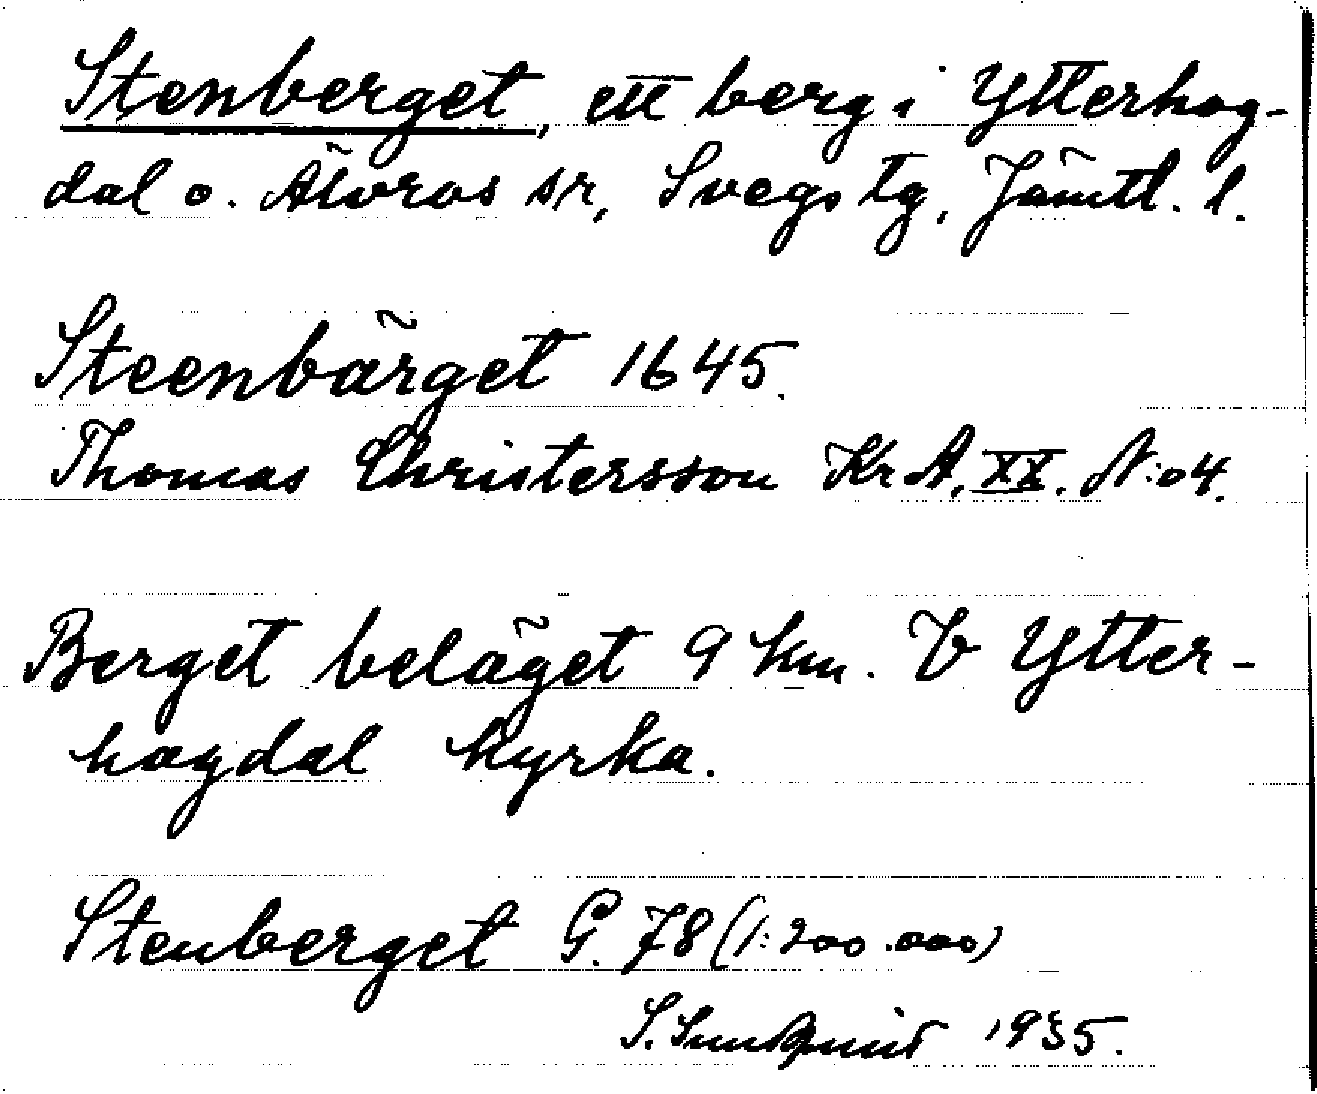 Stenberget, ett berg i Ytterhog-
dal o. Älvros sr, Svegs tg, Jämtl. l.
Steenbärget 1645.
Thomas Christersson Kr A, XX. N:o 4.
Berget beläget 9 km. V Ytter-
hogdal kyrka.
Stenberget G. 78 (1:200.000)
S. Sundqvist 1935.